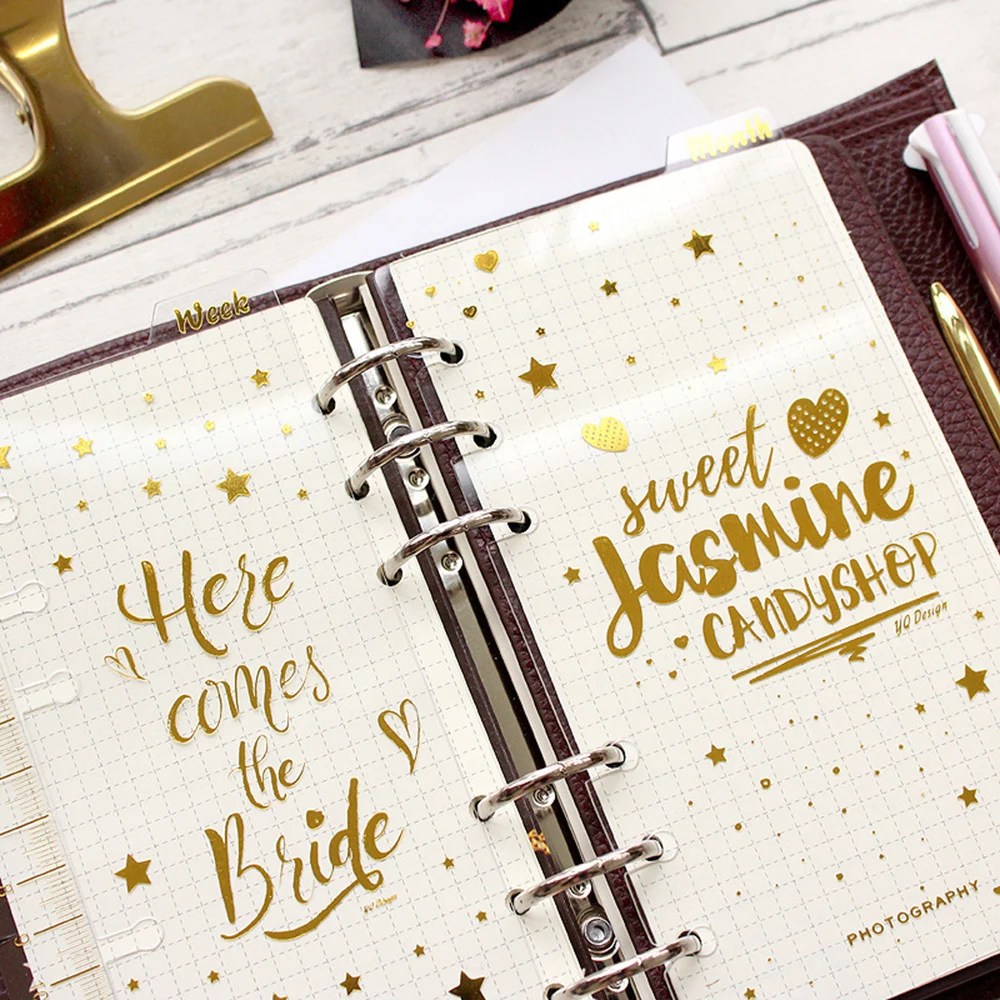 Month
Week
Here
comes
the
Bride
sweet
Jasmine
CANDYSHOP
YQ Design
PHOTOGRAPHY